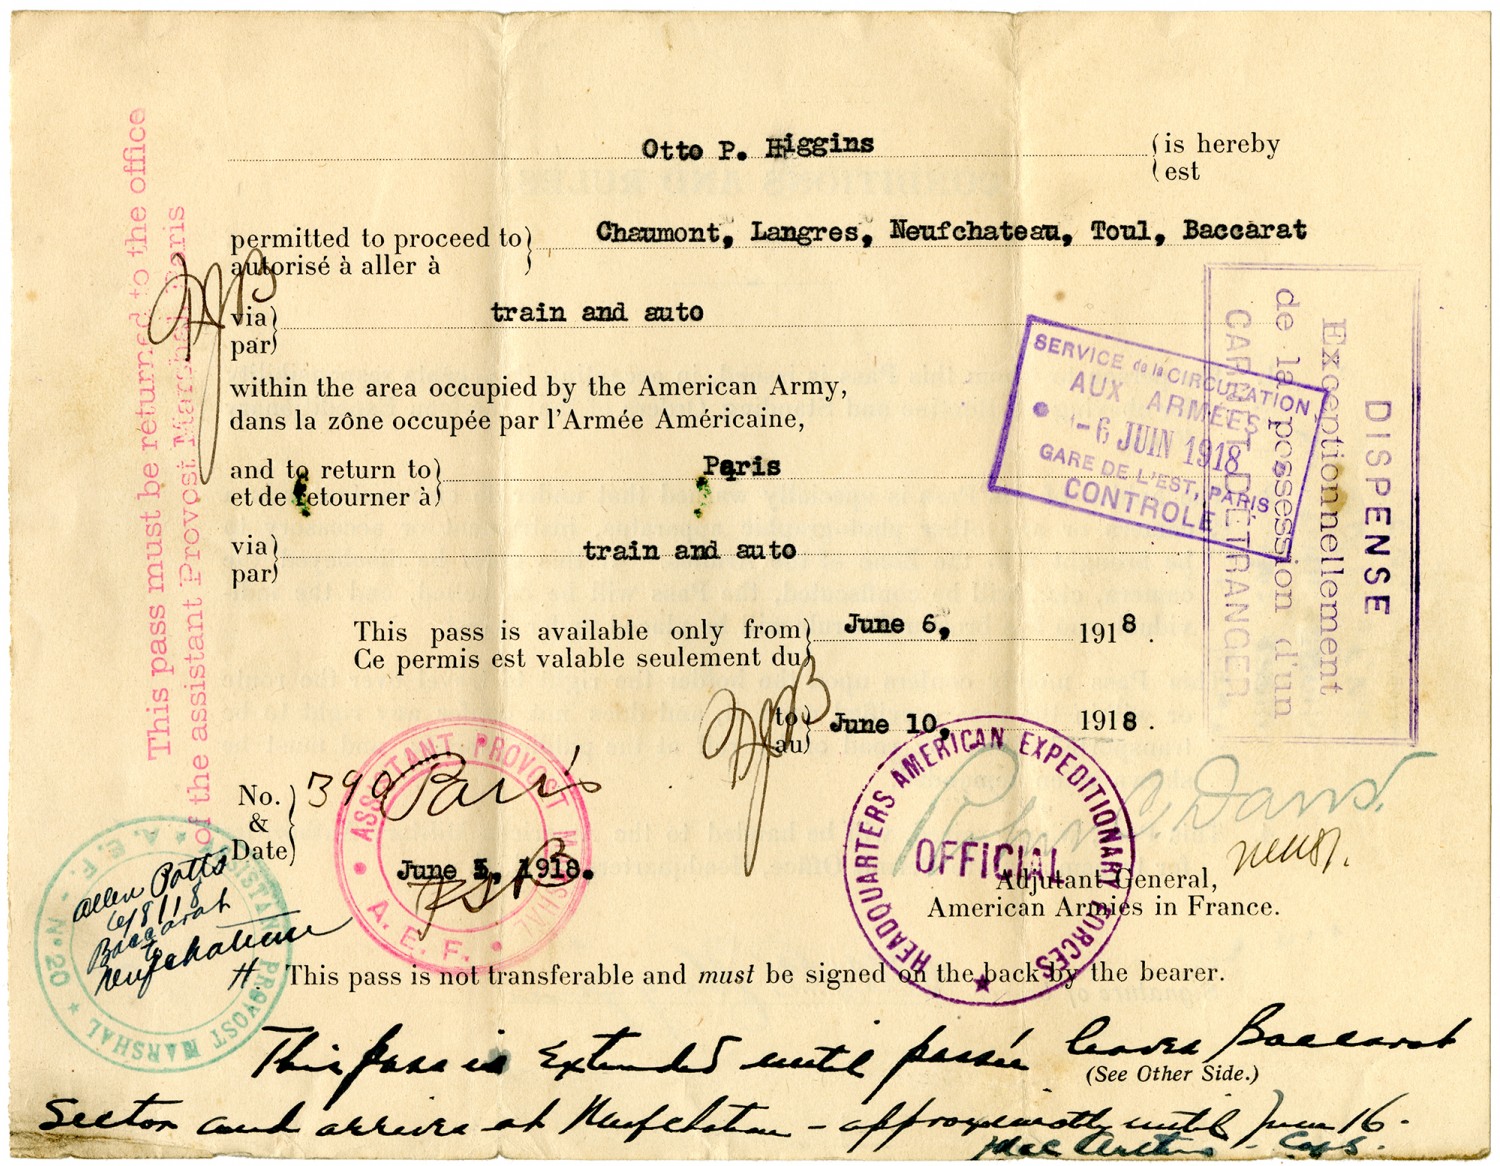 Otto P. Higgins
is hereby
est
permitted to proceed to
autorisé à aller à
Chaumont, Langres, Neufchateau, Toul, Baccarat
via
par
train and auto
within the area occupied by the American Army,
dans la zône occupée par l'Armée Américaine,
and to return to
et de retourner à
Paris
via
par
train and auto
This pass is available only from
Ce permis est valable seulement du
June 6, 1918.
to
au
June 10, 1918.
No.
&
Date
390 Paris
June 5, 1918.
Adjutant General,
American Armies in France.
This pass is not transferable and must be signed on the back by the bearer.
(See Other Side.)
This pass must be returned to the office
of the assistant Provost Marshal Paris
SERVICE de la CIRCULATION
AUX ARMÉES
-6 JUIN 1918
GARE DE L'EST, PARIS
CONTROLE
DISPENSE
Exceptionnellement
de la possession d'un
CARNET D'ÉTRANGER
ASSISTANT PROVOST MARSHAL
A. E. F.
HEADQUARTERS AMERICAN EXPEDITIONARY FORCES
OFFICIAL
ASSISTANT PROVOST MARSHAL
A. E. F. - No 20
Robert C. Davis.
Allen Potts
6/8/18
Baccarat
to
Neufchateau
This pass is Extended until passee leaves Baccarat
Sector and arrives at Neufchateau - approximately until June 16.